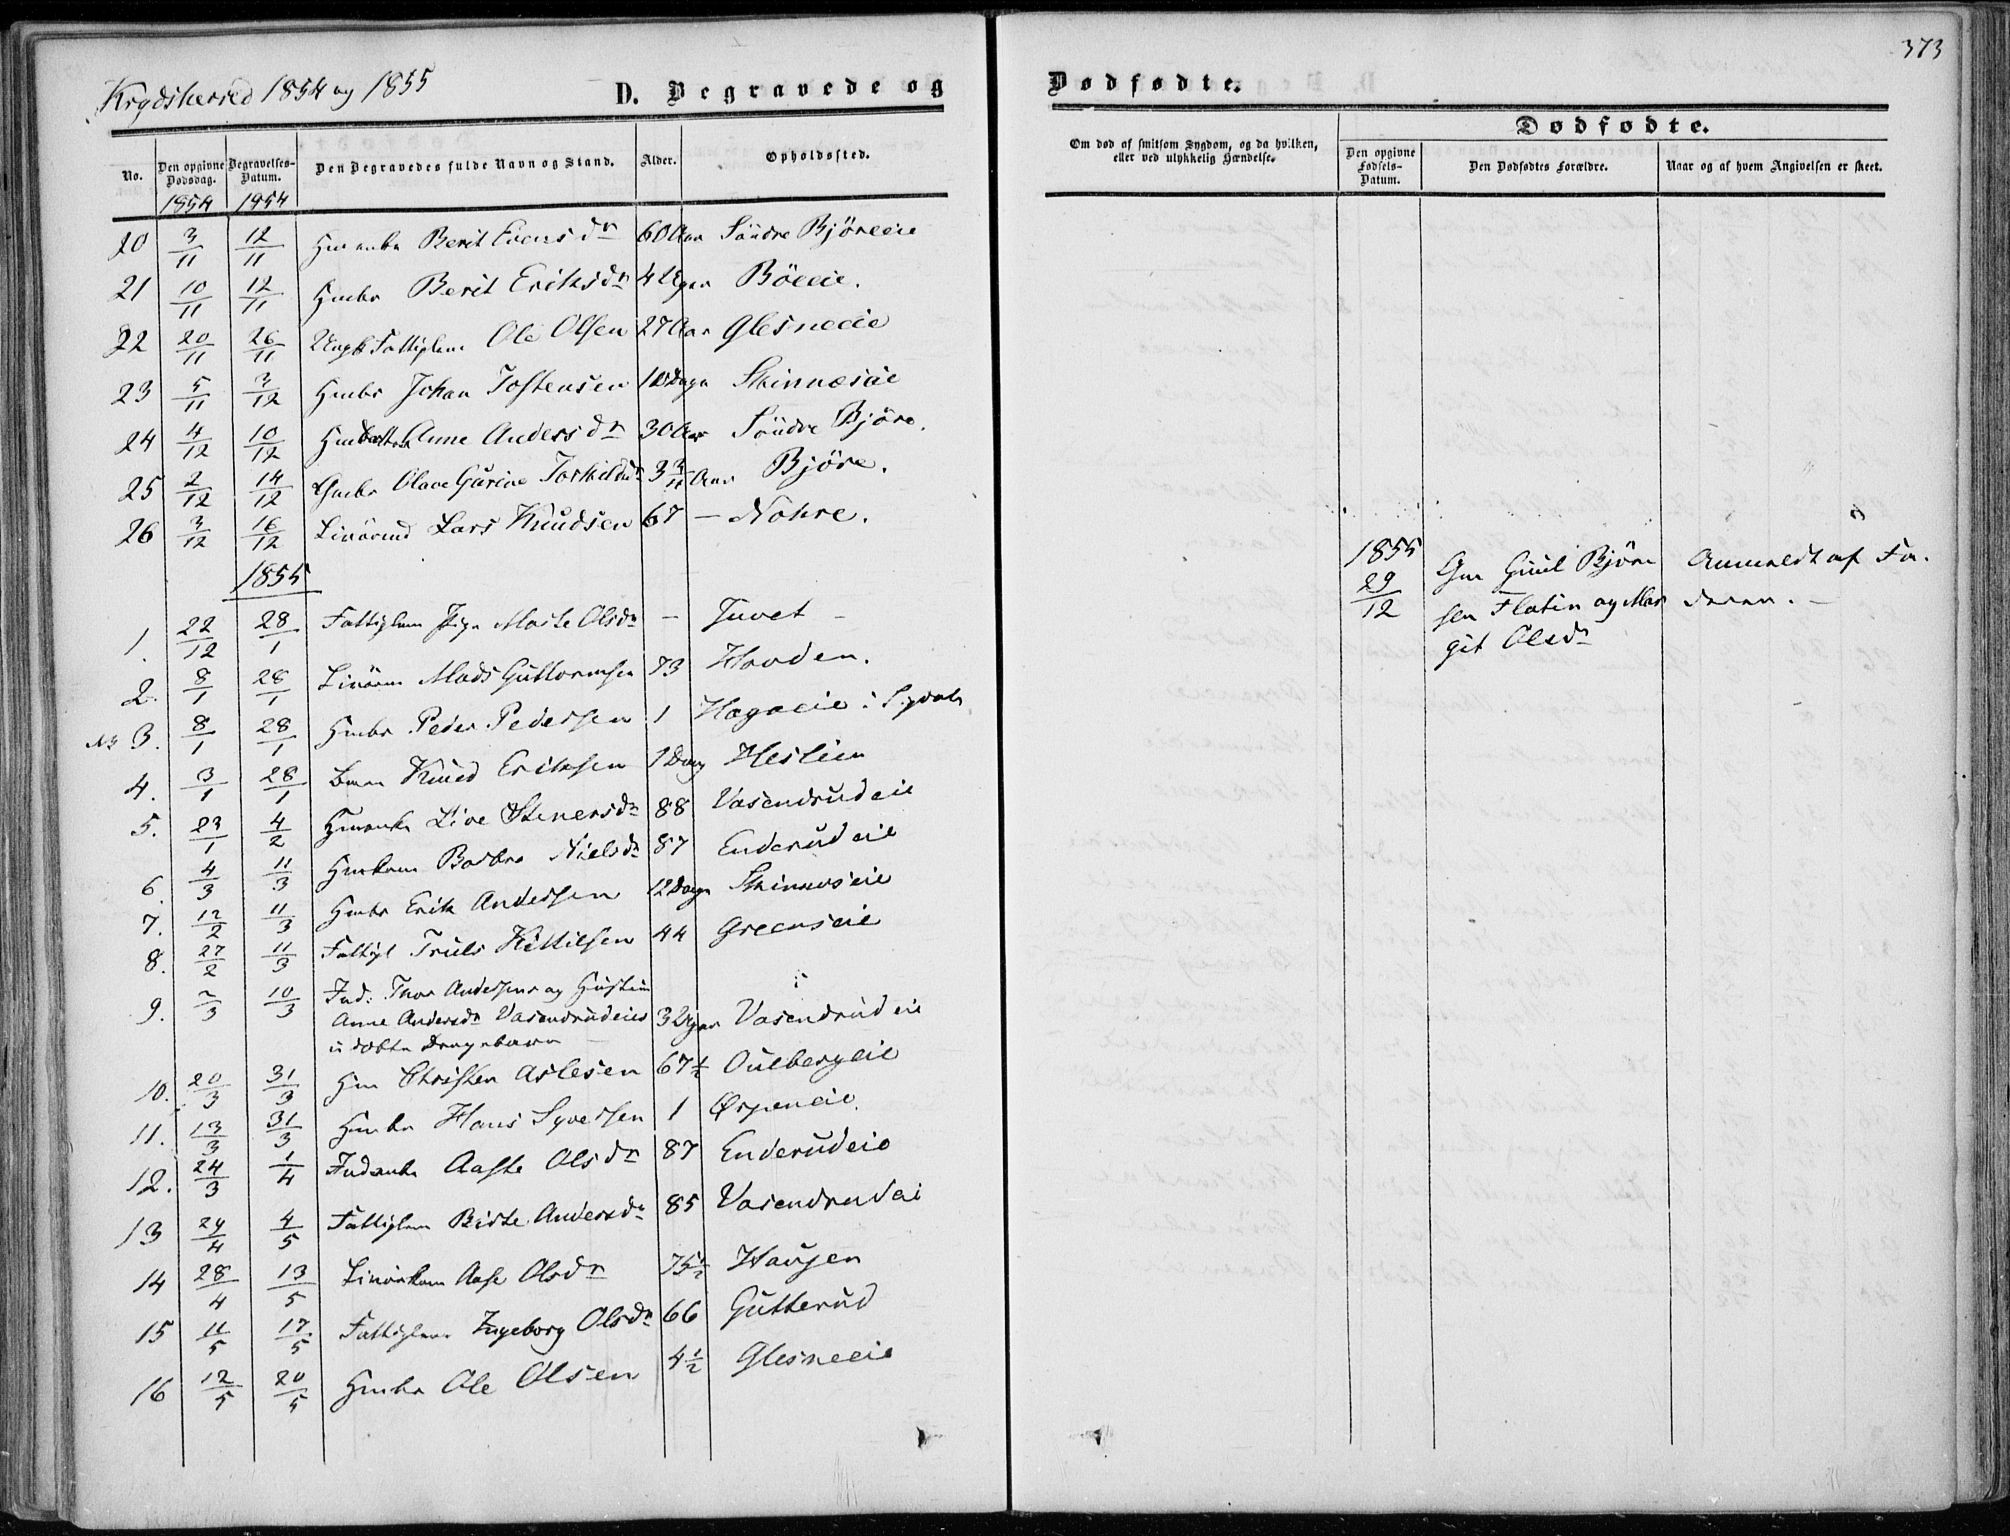 373
Krydsherred 1854 og 1855
D. Begravede og
Dødfødte.
No.
Den opgivne Dødsdag.
Begravelses-Datum.
Den Begravedes fulde Navn og Stand.
Alder.
Opholdssted.
1854 1854
20 3/11 12/11 Berit Evensdr 60 Aar Søndre Bjøreeie
21 10/11 12/11 Gmbr Berit Eriksdr 4 Uger Bøeeie.
22 20/11 26/11 Ungk Fattiglem Ole Olsen 27 Aar Glesneeie
23 5/11 3/12 Gmbr Johan Tostensen 18 Dage Skinneseie
24 4/12 10/12 Anne Andersdr 30 Aar Søndre Bjøre.
25 2/12 14/12 Gmbr Olave Gurine Torkildsdr 3 3/11 Aar Bjøre.
26 3/12 16/12 Lars Knudsen 67 – Nohre.
1855
1. 22/12 28/1 Fattiglem Pige Marte Olsdr – Juvet –
2. 8/1 28/1 Mads Guttormsen 73 Hovden.
3. 8/1 28/1 Hmbr Peder Pedersen 1 Hagaeie i Sigdal
4. 3/1 28/1 Barn Knud Eriksen 1 Dag Heslien
5. 23/1 4/2 Hmenke Live Stenersdr 88 Vasendrudeie
6. 4/3 11/3 Barbro Nielsdr 87 Enderudeie
7. 12/2 11/3 Hmbr Erik Andersen 12 Dage Skinneseie
8. 27/2 11/3 Fattigl Truls Kittilsen 44 Greenseie
9. 2/3 10/3 Ind: Thor Andersens og Hustru
Anne Andersdr Vasendrudeies 3 Uger Vasendrudeie
udøbte Drengebarn
10. 20/3 31/3 Hm Christen Aslesen 67 1/2 Oulbergeie
11. 13/3 31/3 Hmbr Hans Syversen 1 Ørpeneie.
12. 24/3 1/4 Indenke Aaste Olsdr 87 Enderudeie
13 24/4 4/5 Fattiglem Birte Andersdr 85 Vasendrudei
14 28/4 13/5 Aase Olsdr 75 1/2 Haugen
15 11/5 17/5 Fattiglem Ingeborg Olsdr 66 Gutterud
16 12/5 20/5 Hmbr Ole Olsen 4 1/2 Glesneeie
Om død af smitsom Sygdom, og da hvilken,
eller ved ulykkelig Hændelse.
Dødfødte.
Den opgivne Fødsels-Datum.
Den Dødfødtes Forældre.
Naar og af hvem Angivelsen er skeet.
1855
29/12
Gm Guul Bjørn
sen Flatin og Mar
git Olsdr
Anmeldt af Fa-
deren. –